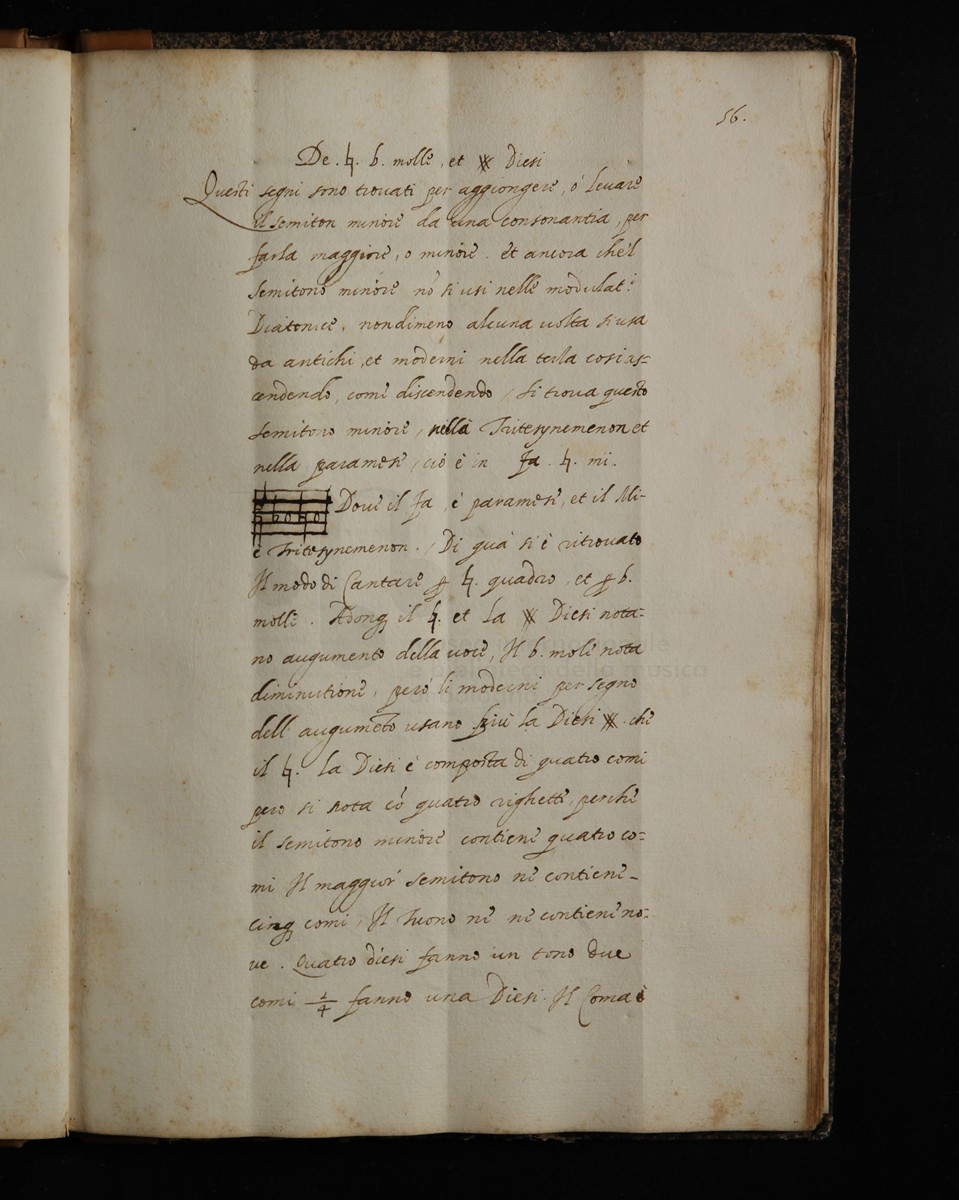 56.
De . ♮. b. molle, et 𝄪 Diesi
Questi segni sono trovati per aggiongere, ó levare
il semiton minore da una consonantia, per
farla maggiore, o minore. et ancora che'l
semitono minore nō si usi nelle modulat.i
Diatonice, nondimeno alcuna volta si usa
da antichi, et moderni nella terla cosi as=
cendendo, come discendendo / si trova questo
semitono minore, nella Tritesynemenon et
nella paramese, ciò è in fa . ♮. mi.
Dove il fa, è paramese, et il Mi-
è Tritesynemenon. / Di qua si è ritrovato
Il modo di Cantare p ♮. quadro, et p b.
molle. Adonq il ♮. et La 𝄪 Diesi nota=
no augumento della voce, Il b. mole nota
diminutione, peró li moderni per segno
dell' augumēto usano più la Diesi 𝄪. che
il ♮. La Diesi è composta di quatro comi
pero si nota cō quatro righette, perche
il semitono minore contiene quatro co=
mi Il maggior semitono ne contiene-
cinq comi, Il Tuono ne ne contiene no=
ve. Quatro diesi fanno un tono due
comi 1/4 fanno una Diesi. Il Coma è